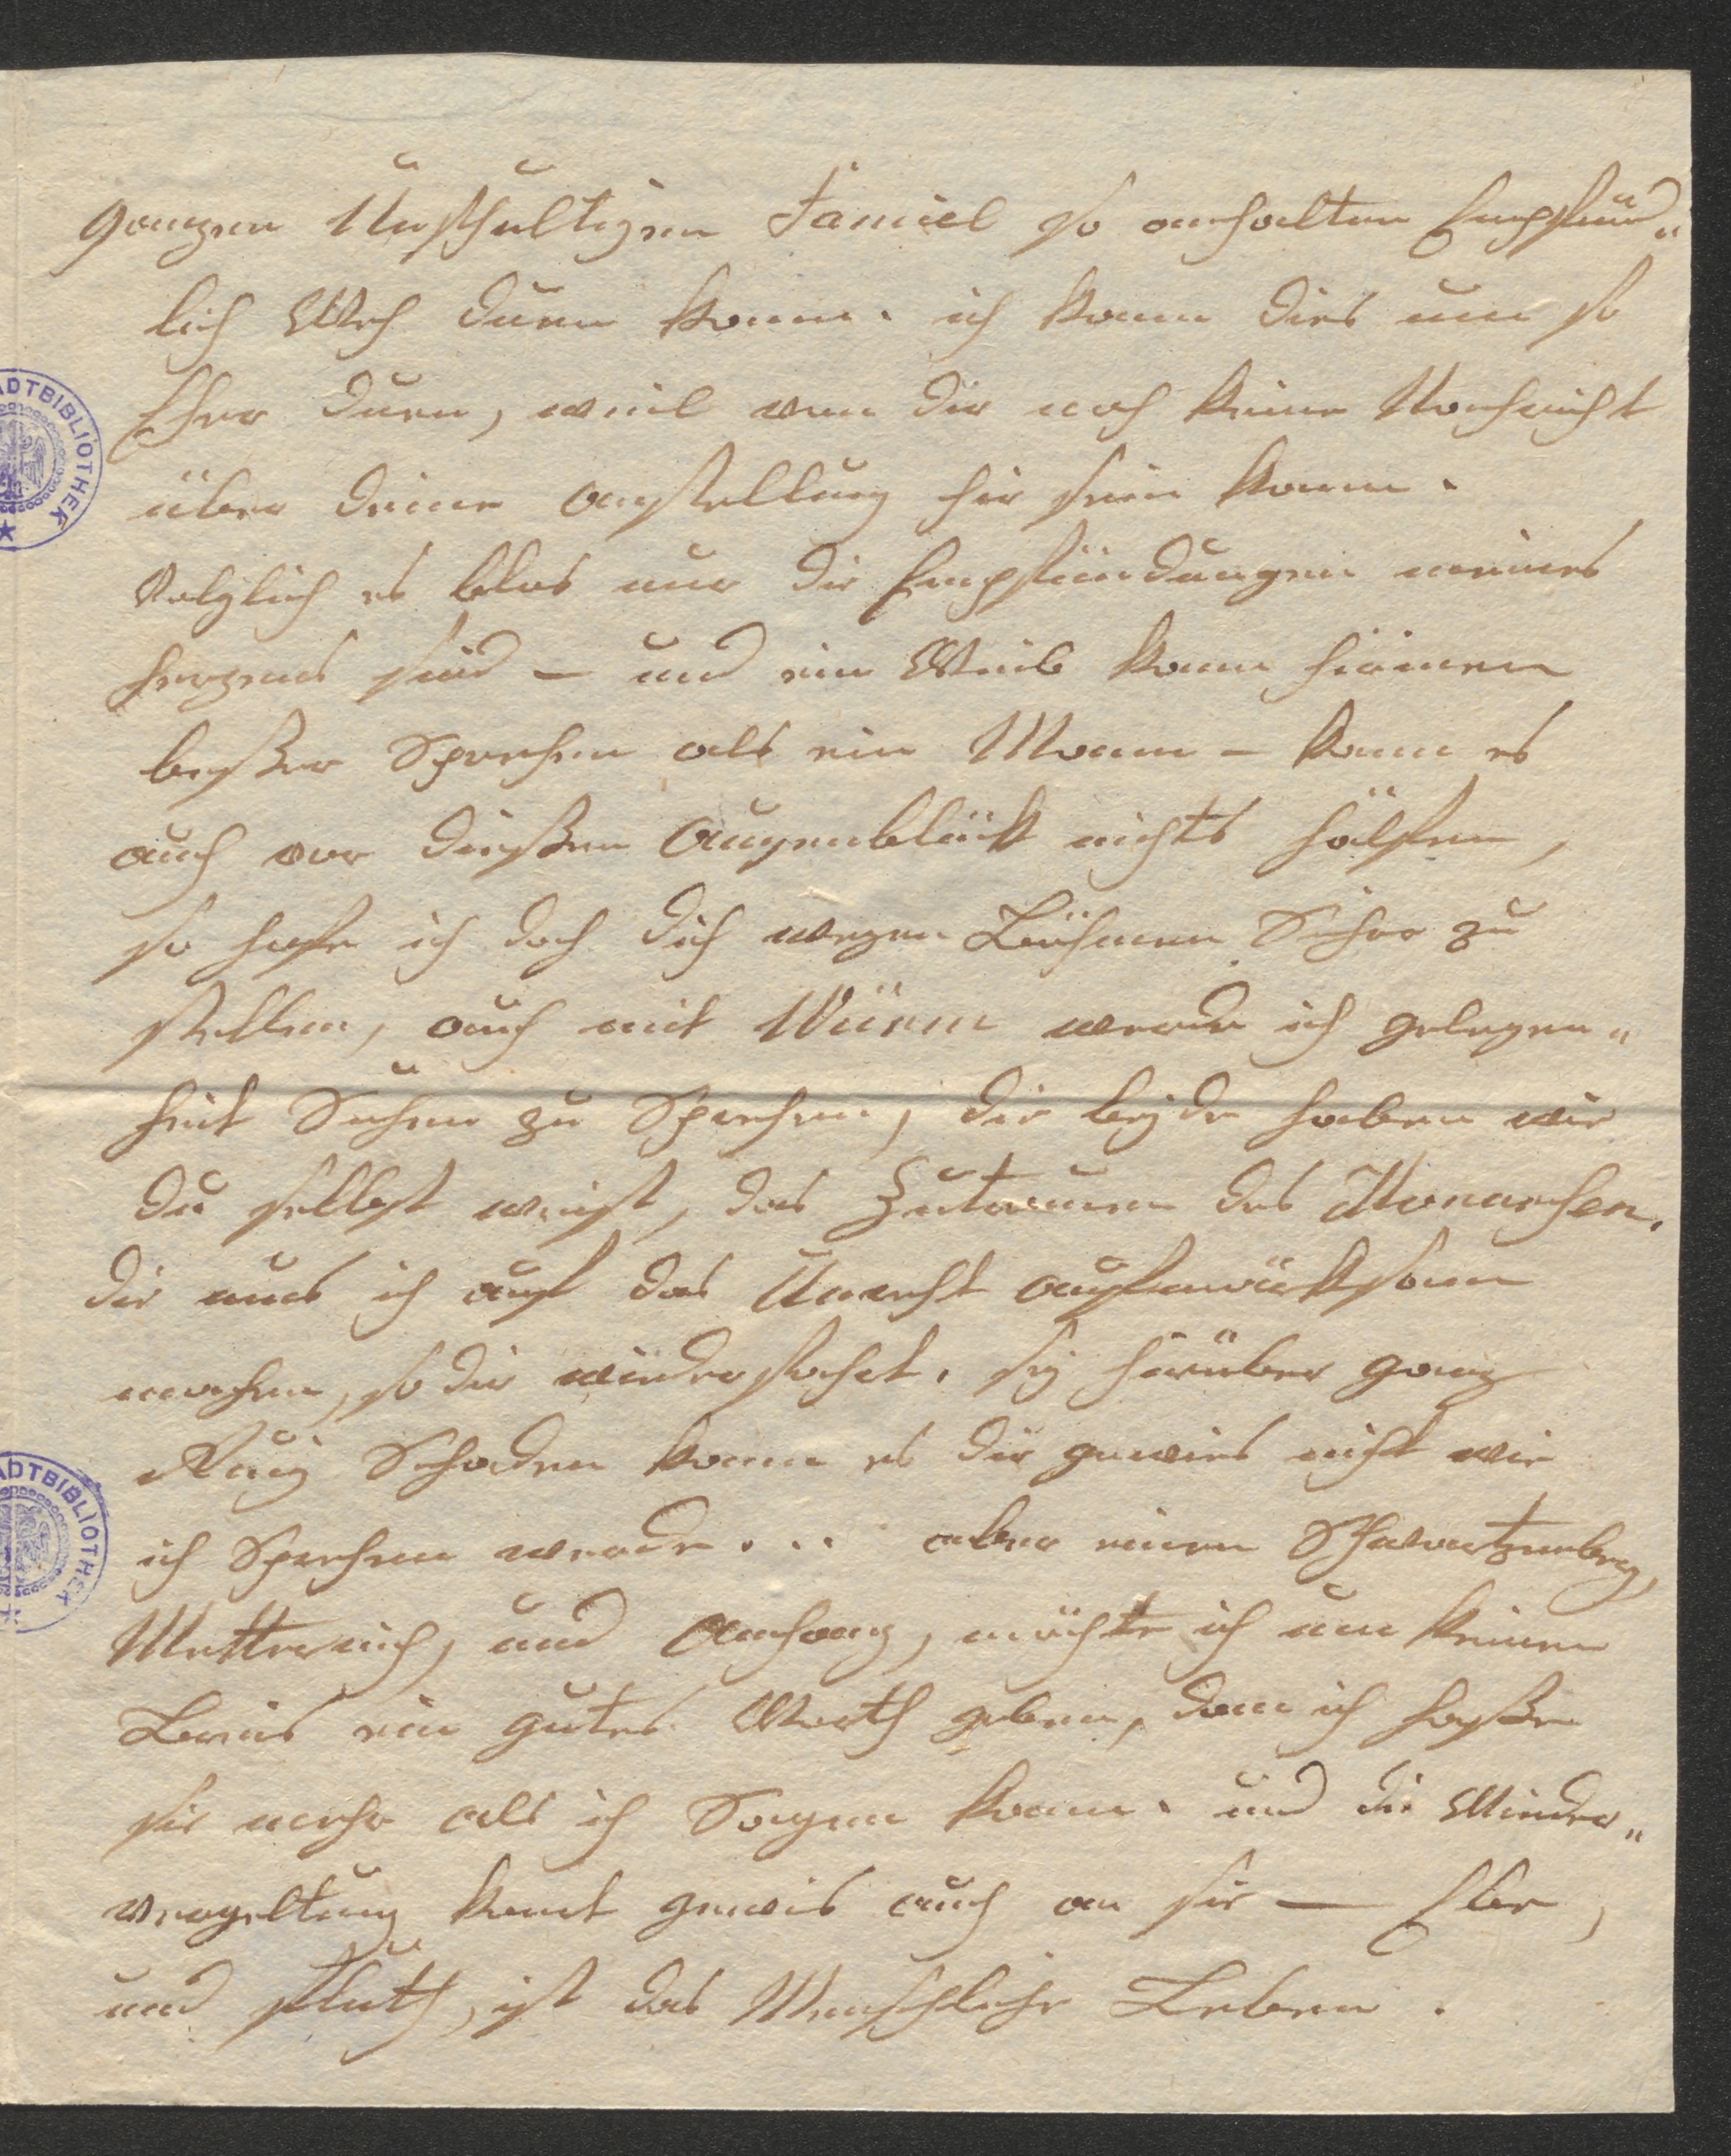 ganzen Unschultigen Famiel so anhalten Empfünd„
lich Weh duen kann. ich kann dies um so
Eher duen, weil von dir noch keine Nachricht
über deine anstellung hir sein kann.
Volglich es blos nur die Empfündungen meines
Herzens sind – und ein Weib kann hirinen
beßer Sprechen als ein Mann – kann es
auch vor dießen Augenblück nichts hälfen,
so hoffe ich doch dich wegen Böhmen Sicher zu
stellen, auch mit Würm werde ich gelegen„
heit Suchen zu Sprechen, die beyde haben wie
du selbst weist, das Zutrauen des Monarchen.
die mus ich auf das Unrecht aufmörksam
machen, so dir wiedersachet. sey hirüber ganz
Ruig Schaden kann es dir gewies nicht wie
ich Sprechen werde... aber einen Schwartzenberg,
Metternich, und Anhang, möchte ich um keinen
Breis ein gutes Worth geben, dann ich haße
sie mehr als ich Sagen kann. und die Wieder„
vergeltung komt gewis auch an sie — Ebe,
und Fluth, ist das Menschliche Leben.
STADTBIBLIOTHEK
STADTBIBLIOTHEK